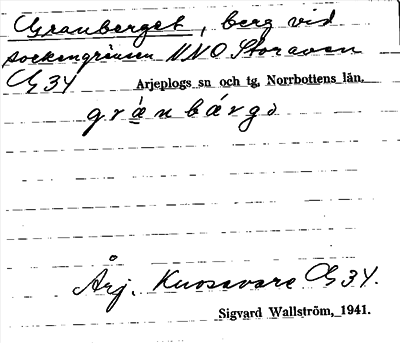 Granberget, berg vid
sockengränsen NNO Storavan
G 34 Arjeplogs sn och tg, Norrbottens län.
grànbárgə
Årj. Kuosavare G 34.
Sigvard Wallström, 1941.